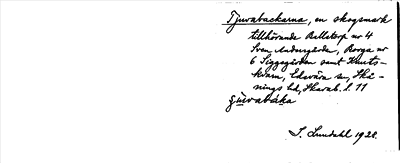 Tjuvabackarna, en skogsmark
tillhörande Bellstorp nr 4
Sven Andersgården, Borga nr
6 Siggagården samt Knuts-
kvarn, Edsvära sn, Skå-
nings hd, Skarab. l. 11
çu̇vabáka
S. Lundahl 1928.